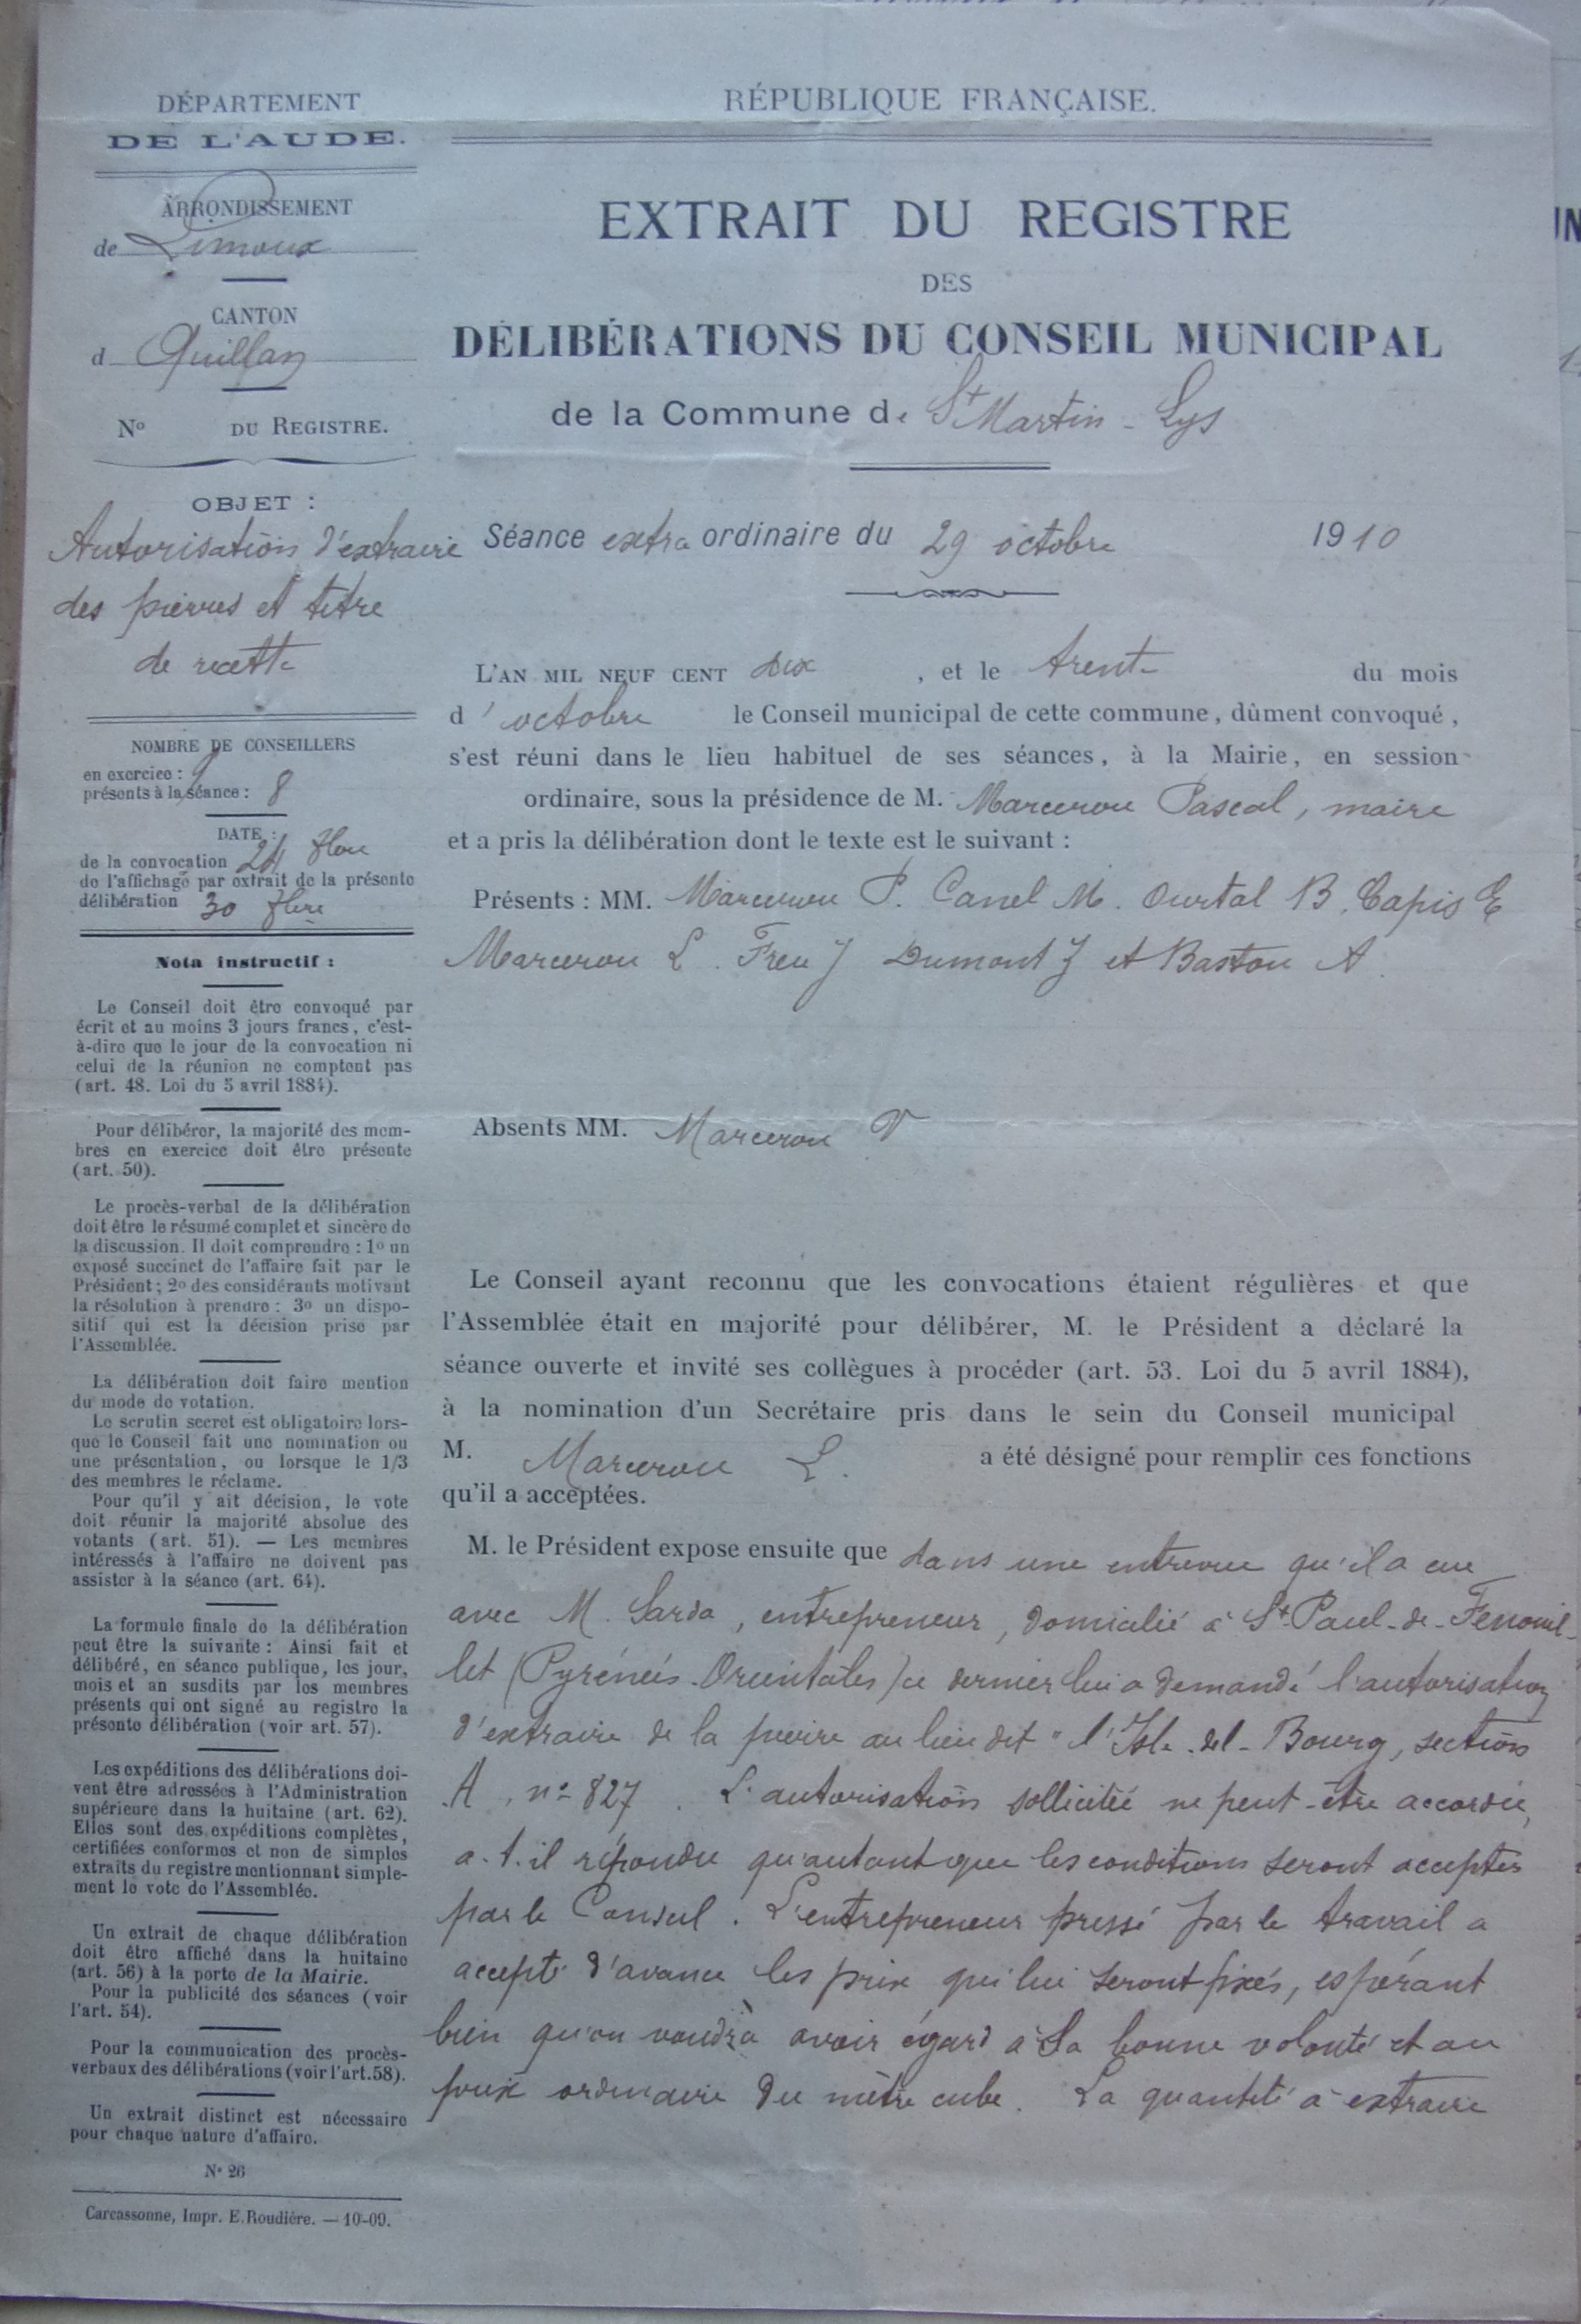 DÉPARTEMENT
DE L'AUDE.
ARRONDISSEMENT
de Limoux
CANTON
d Quillan
No DU REGISTRE.
OBJET :
Autorisation d'extraire
des pierres et titre
de recette
NOMBRE DE CONSEILLERS
en exercice : 9
présents à la séance : 8
DATE :
de la convocation 24
de l'affichage par extrait de la présente
délibération 30
Nota instructif :
Le Conseil doit être convoqué par
écrit et au moins 3 jours francs, c'est-
à-dire que le jour de la convocation ni
celui de la réunion ne comptent pas
(art. 48. Loi du 5 avril 1884).
Pour délibérer, la majorité des mem-
bres en exercice doit être présente
(art. 50).
Le procès-verbal de la délibération
doit être le résumé complet et sincère de
la discussion. Il doit comprendre : 1o un
exposé succinct de l'affaire fait par le
Président ; 2o des considérants motivant
la résolution à prendre : 3o un dispo-
sitif qui est la décision prise par
l'Assemblée.
La délibération doit faire mention
du mode de votation.
Le scrutin secret est obligatoire lors-
que le Conseil fait une nomination ou
une présentation, ou lorsque le 1/3
des membres le réclame.
Pour qu'il y ait décision, le vote
doit réunir la majorité absolue des
votants (art. 51). — Les membres
intéressés à l'affaire ne doivent pas
assister à la séance (art. 64).
La formule finale de la délibération
peut être la suivante : Ainsi fait et
délibéré, en séance publique, les jour,
mois et an susdits par les membres
présents qui ont signé au registre la
présente délibération (voir art. 57).
Les expéditions des délibérations doi-
vent être adressées à l'Administration
supérieure dans la huitaine (art. 62).
Elles sont des expéditions complètes,
certifiées conformes et non de simples
extraits du registre mentionnant simple-
ment le vote de l'Assemblée.
Un extrait de chaque délibération
doit être affiché dans la huitaine
(art. 56) à la porte de la Mairie.
Pour la publicité des séances (voir
l'art. 54).
Pour la communication des procès-
verbaux des délibérations (voir l'art. 58).
Un extrait distinct est nécessaire
pour chaque nature d'affaire.
No 26
Carcassonne, Impr. E. Roudière. — 10-09.
RÉPUBLIQUE FRANÇAISE.
EXTRAIT DU REGISTRE
DES
DÉLIBÉRATIONS DU CONSEIL MUNICIPAL
de la Commune de St Martin - Lys
Séance extra ordinaire du 29 octobre 1910
L'AN MIL NEUF CENT dix , et le trente du mois
d'octobre le Conseil municipal de cette commune, dûment convoqué,
s'est réuni dans le lieu habituel de ses séances, à la Mairie, en session
ordinaire, sous la présidence de M. Marcerou Pascal, maire
et a pris la délibération dont le texte est le suivant :
Présents : MM. Marcerou P. Canel M. Ourtal B. Capis E
Marcerou L. Freu J Dumont J et Baston A.
Absents MM. Marcerou V
Le Conseil ayant reconnu que les convocations étaient régulières et que
l'Assemblée était en majorité pour délibérer, M. le Président a déclaré la
séance ouverte et invité ses collègues à procéder (art. 53. Loi du 5 avril 1884),
à la nomination d'un Secrétaire pris dans le sein du Conseil municipal
M. Marcerou L. a été désigné pour remplir ces fonctions
qu'il a acceptées.
M. le Président expose ensuite que dans une entrevue qu'il a eue
avec M. Sarda, entrepreneur, domicilié à St Paul-de-Fenouil-
let (Pyrénées-Orientales) ce dernier lui a demandé l'autorisation
d'extraire de la pierre au lieu dit "l'Isle-del-Bourg, section
A, no 827. L'autorisation sollicitée ne peut-être accordée,
a-t-il répondu qu'autant que les conditions seront acceptés
par le Conseil. L'entrepreneur pressé par le travail a
accepté d'avance les prix qui lui seront fixés, espérant
bien qu'on voudra avoir égard à sa bonne volonté et au
prix ordinaire du mètre cube. La quantité à extraire